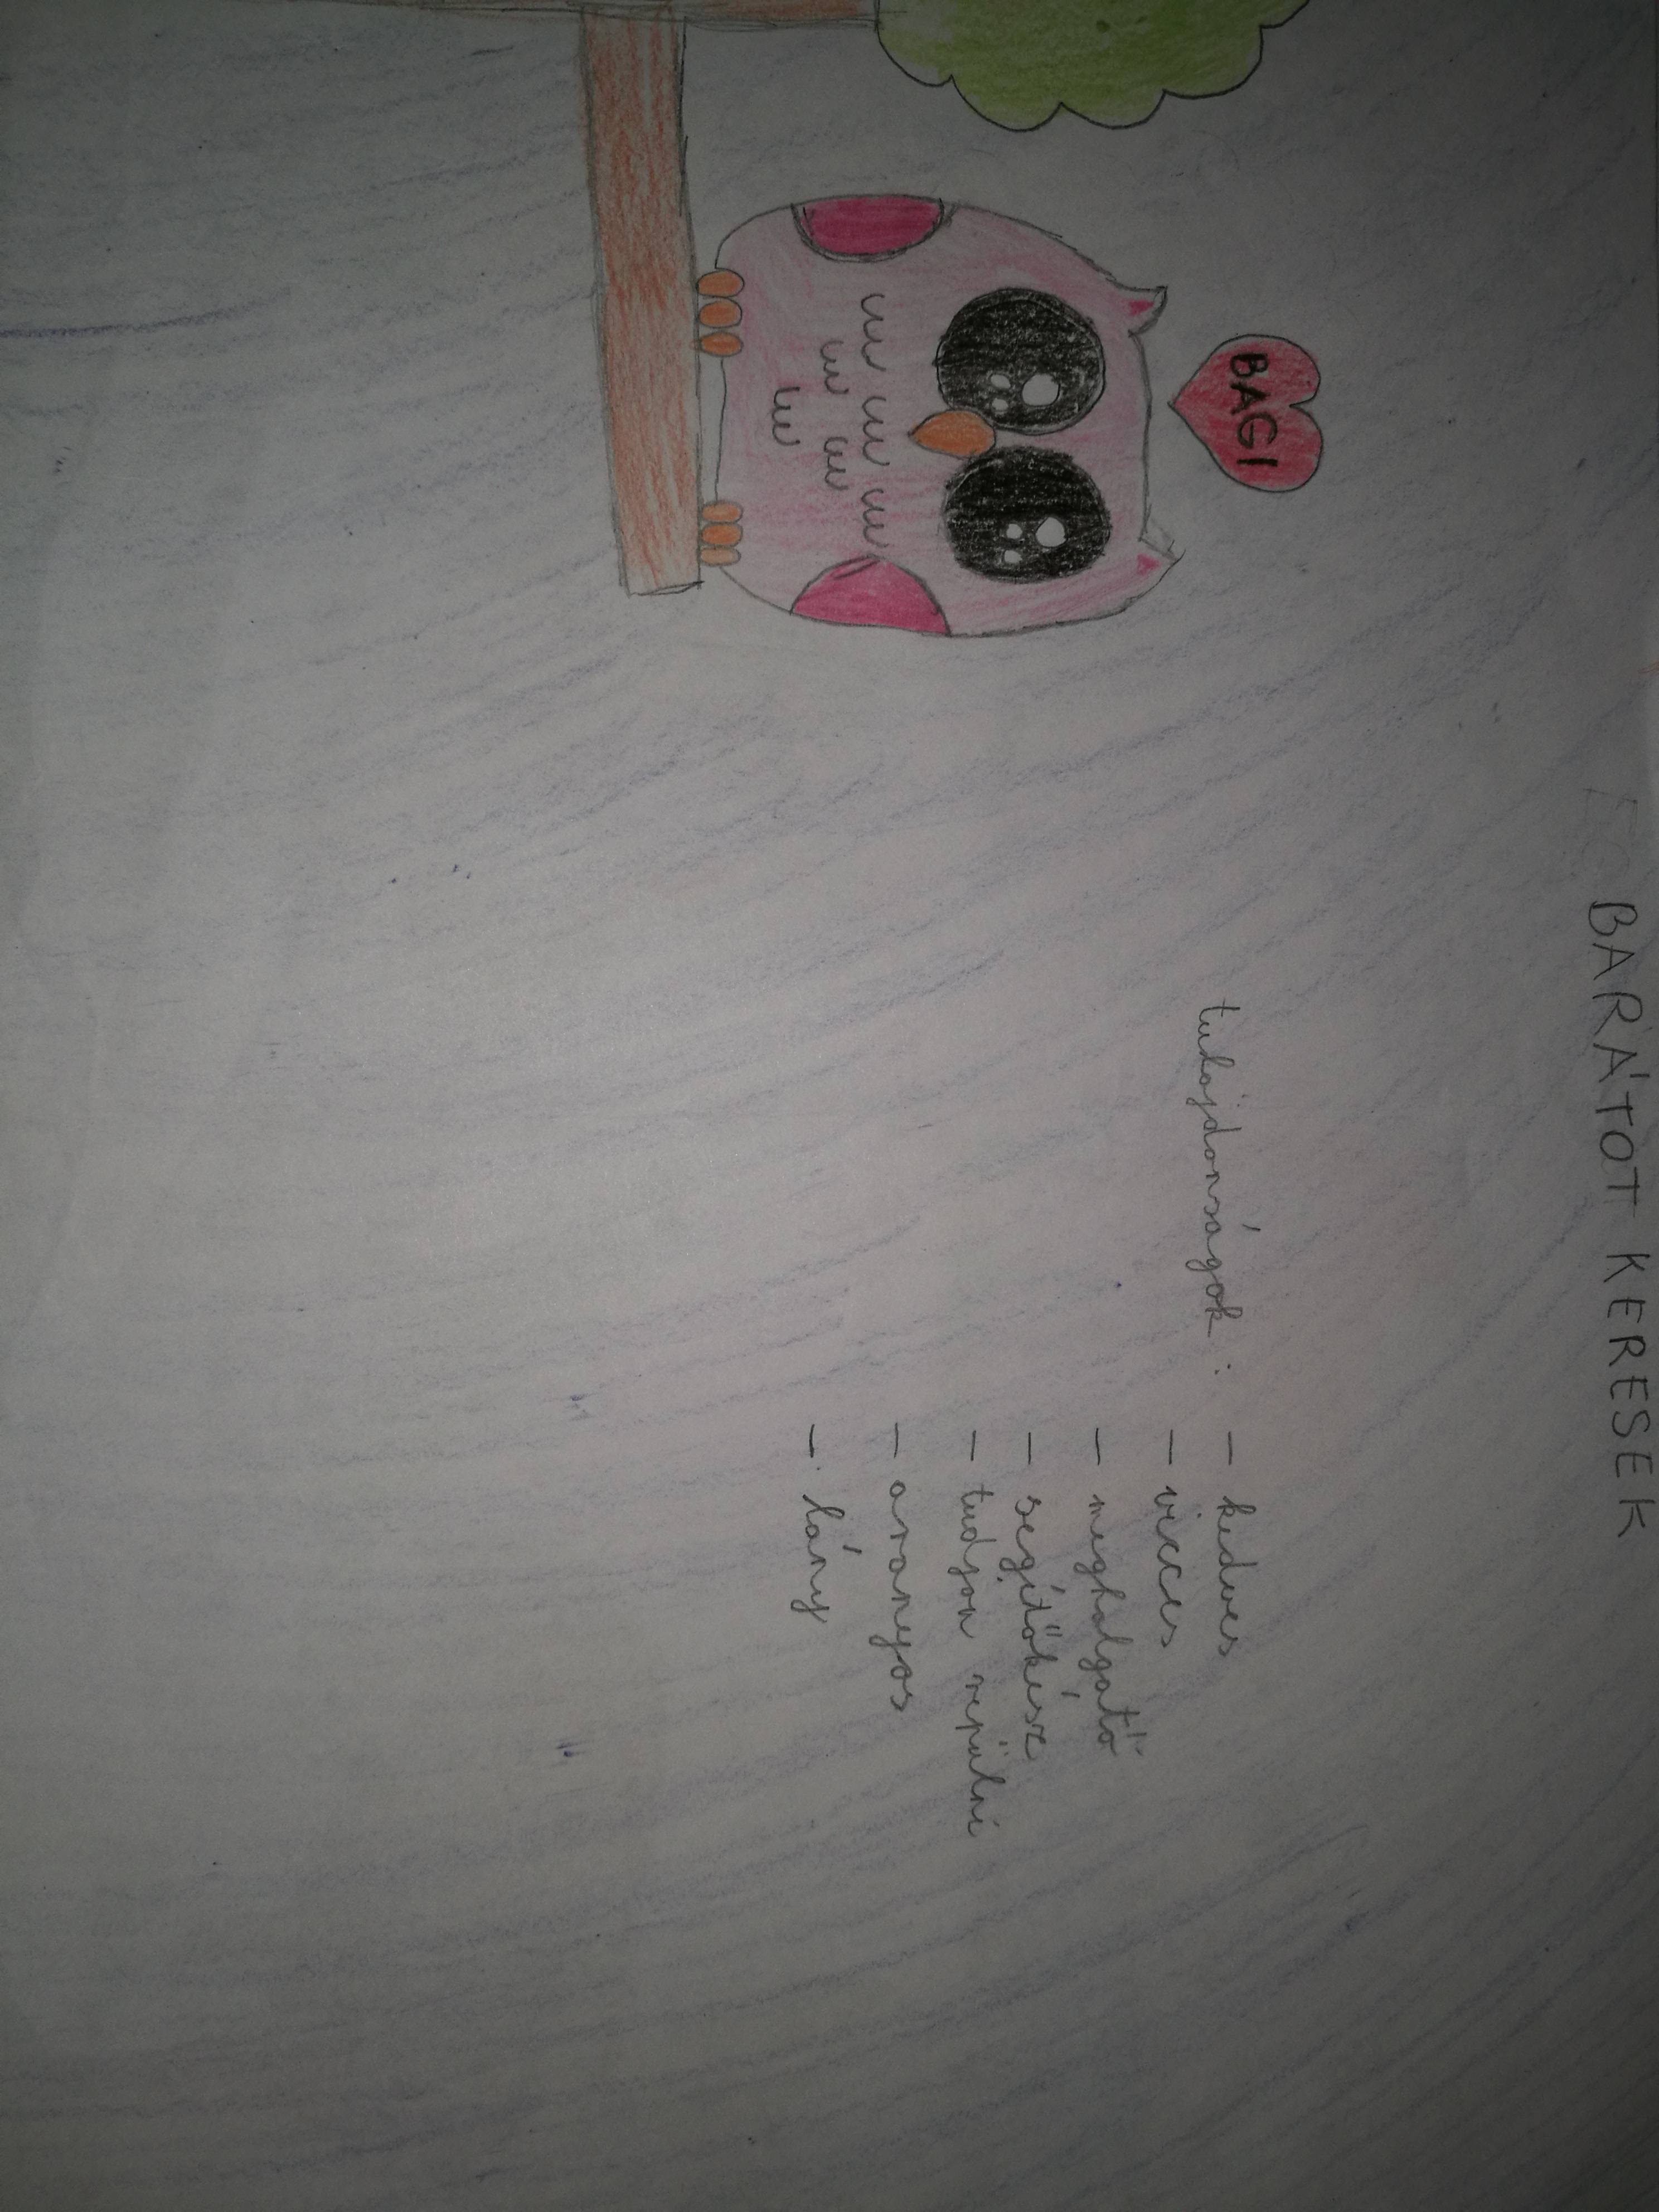 BARÁTOT KERESEK
BAGI
tulajdonságok: - kedves
- vicces
- meghalgató
- segítőkész
- tudjon repülni
- aranyos
- lány